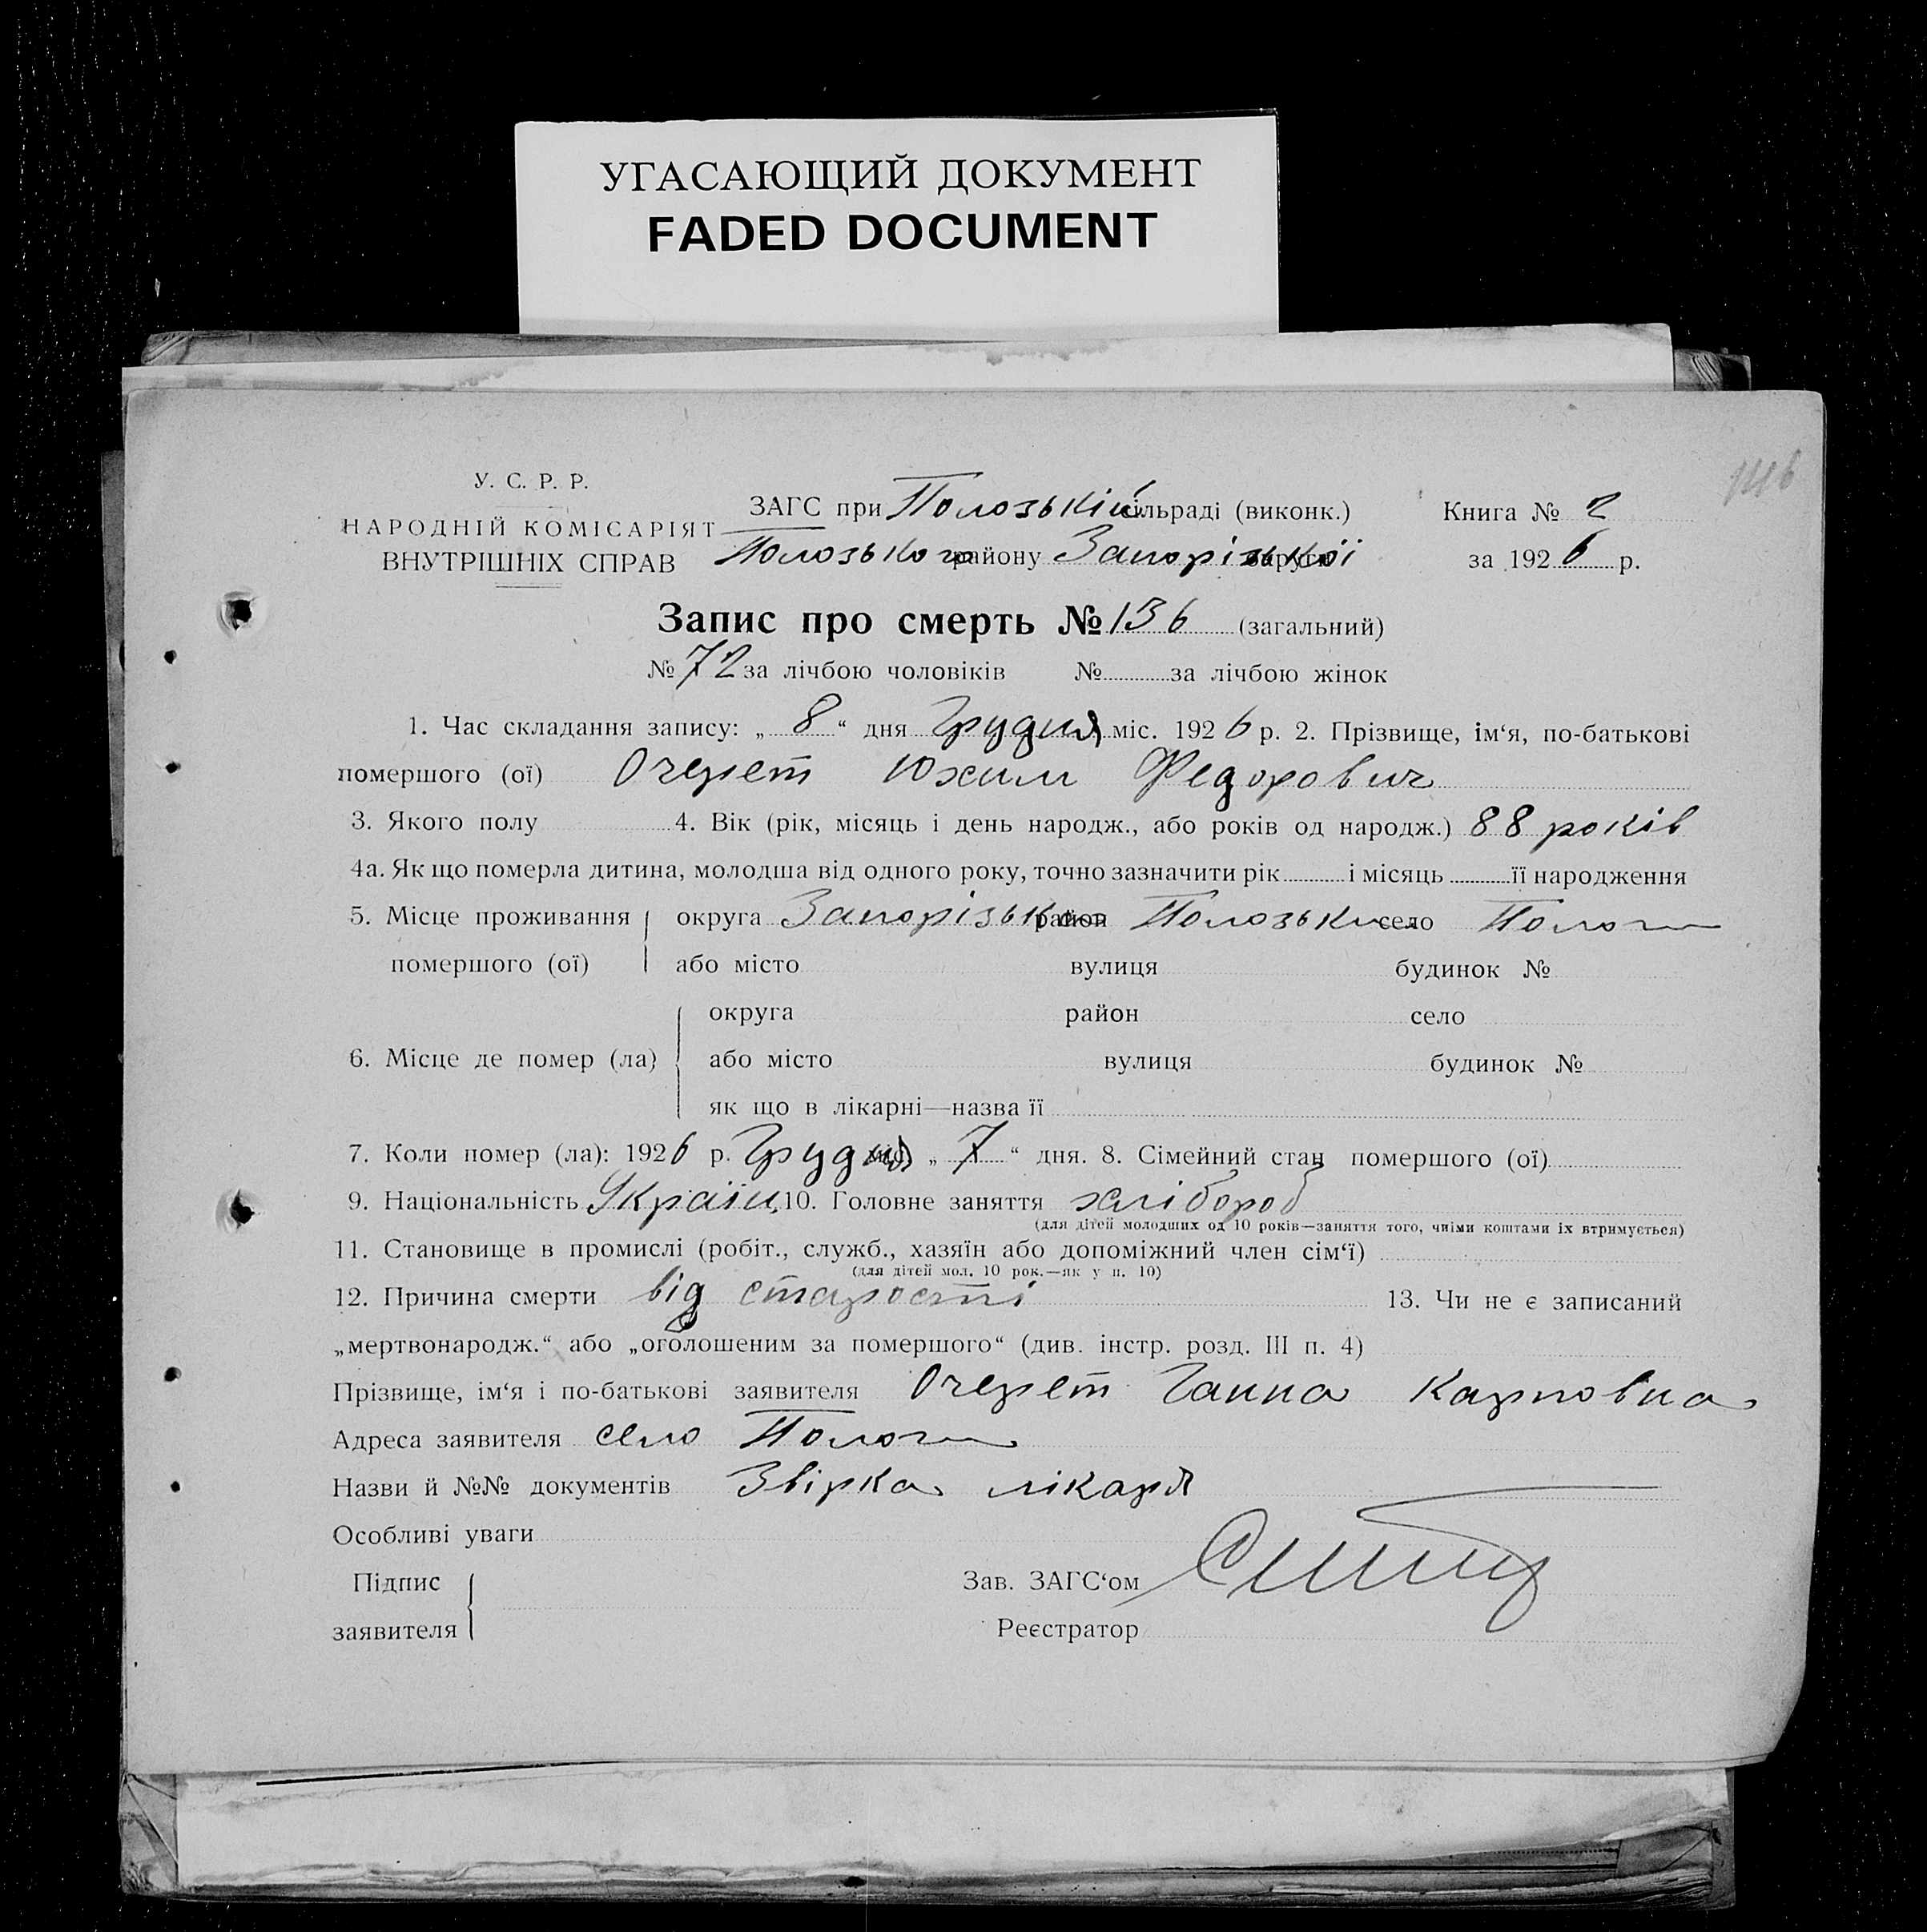 УГАСАЮЩИЙ ДОКУМЕНТ
FADED DOCUMENT
У. С. Р. Р.
НАРОДНІЙ КОМІСАРІЯТ
ВНУТРІШНІХ СПРАВ
ЗАГС при Полозькій сільраді (виконк.)
Полозького району Запорізької округи
Книга № 2
за 1926 р.
Запис про смерть № 136 (загальний)
№ 72 за лічбою чоловіків № за лічбою жінок
1. Час складання запису: „ 8 “ дня Грудня міс. 1926 р. 2. Прізвище, ім‘я, по-батькові
помершого (ої) Очерет Юхим Федорович
3. Якого полу 4. Вік (рік, місяць і день народж., або років од народж.) 88 років
4а. Як що померла дитина, молодша від одного року, точно зазначити рік і місяць її народження
5. Місце проживання округа Запорізька район Полозький село Пологи
помершого (ої) або місто вулиця будинок №
округа район село
6. Місце де помер (ла) або місто вулиця будинок №
як що в лікарні—назва її
7. Коли помер (ла): 1926 р. Грудня міс. „ 7 “ дня. 8. Сімейний стан помершого (ої)
9. Національність Україн. 10. Головне заняття хлібороб
(для дітей молодших од 10 років—заняття того, чиїми коштами їх втримується)
11. Становище в промислі (робіт., служб., хазяїн або допоміжний член сім‘ї)
(для дітей мол. 10 рок.—як у п. 10)
12. Причина смерти від старости 13. Чи не є записаний
„мертвонародж.“ або „оголошеним за помершого“ (див. інстр. розд. III п. 4)
Прізвище, ім‘я і по-батькові заявителя Очерет Ганна Карповна
Адреса заявителя село Пологи
Назви й №№ документів Звірка лікаря
Особливі уваги
Підпис
заявителя
Зав. ЗАГС‘ом
Реєстратор